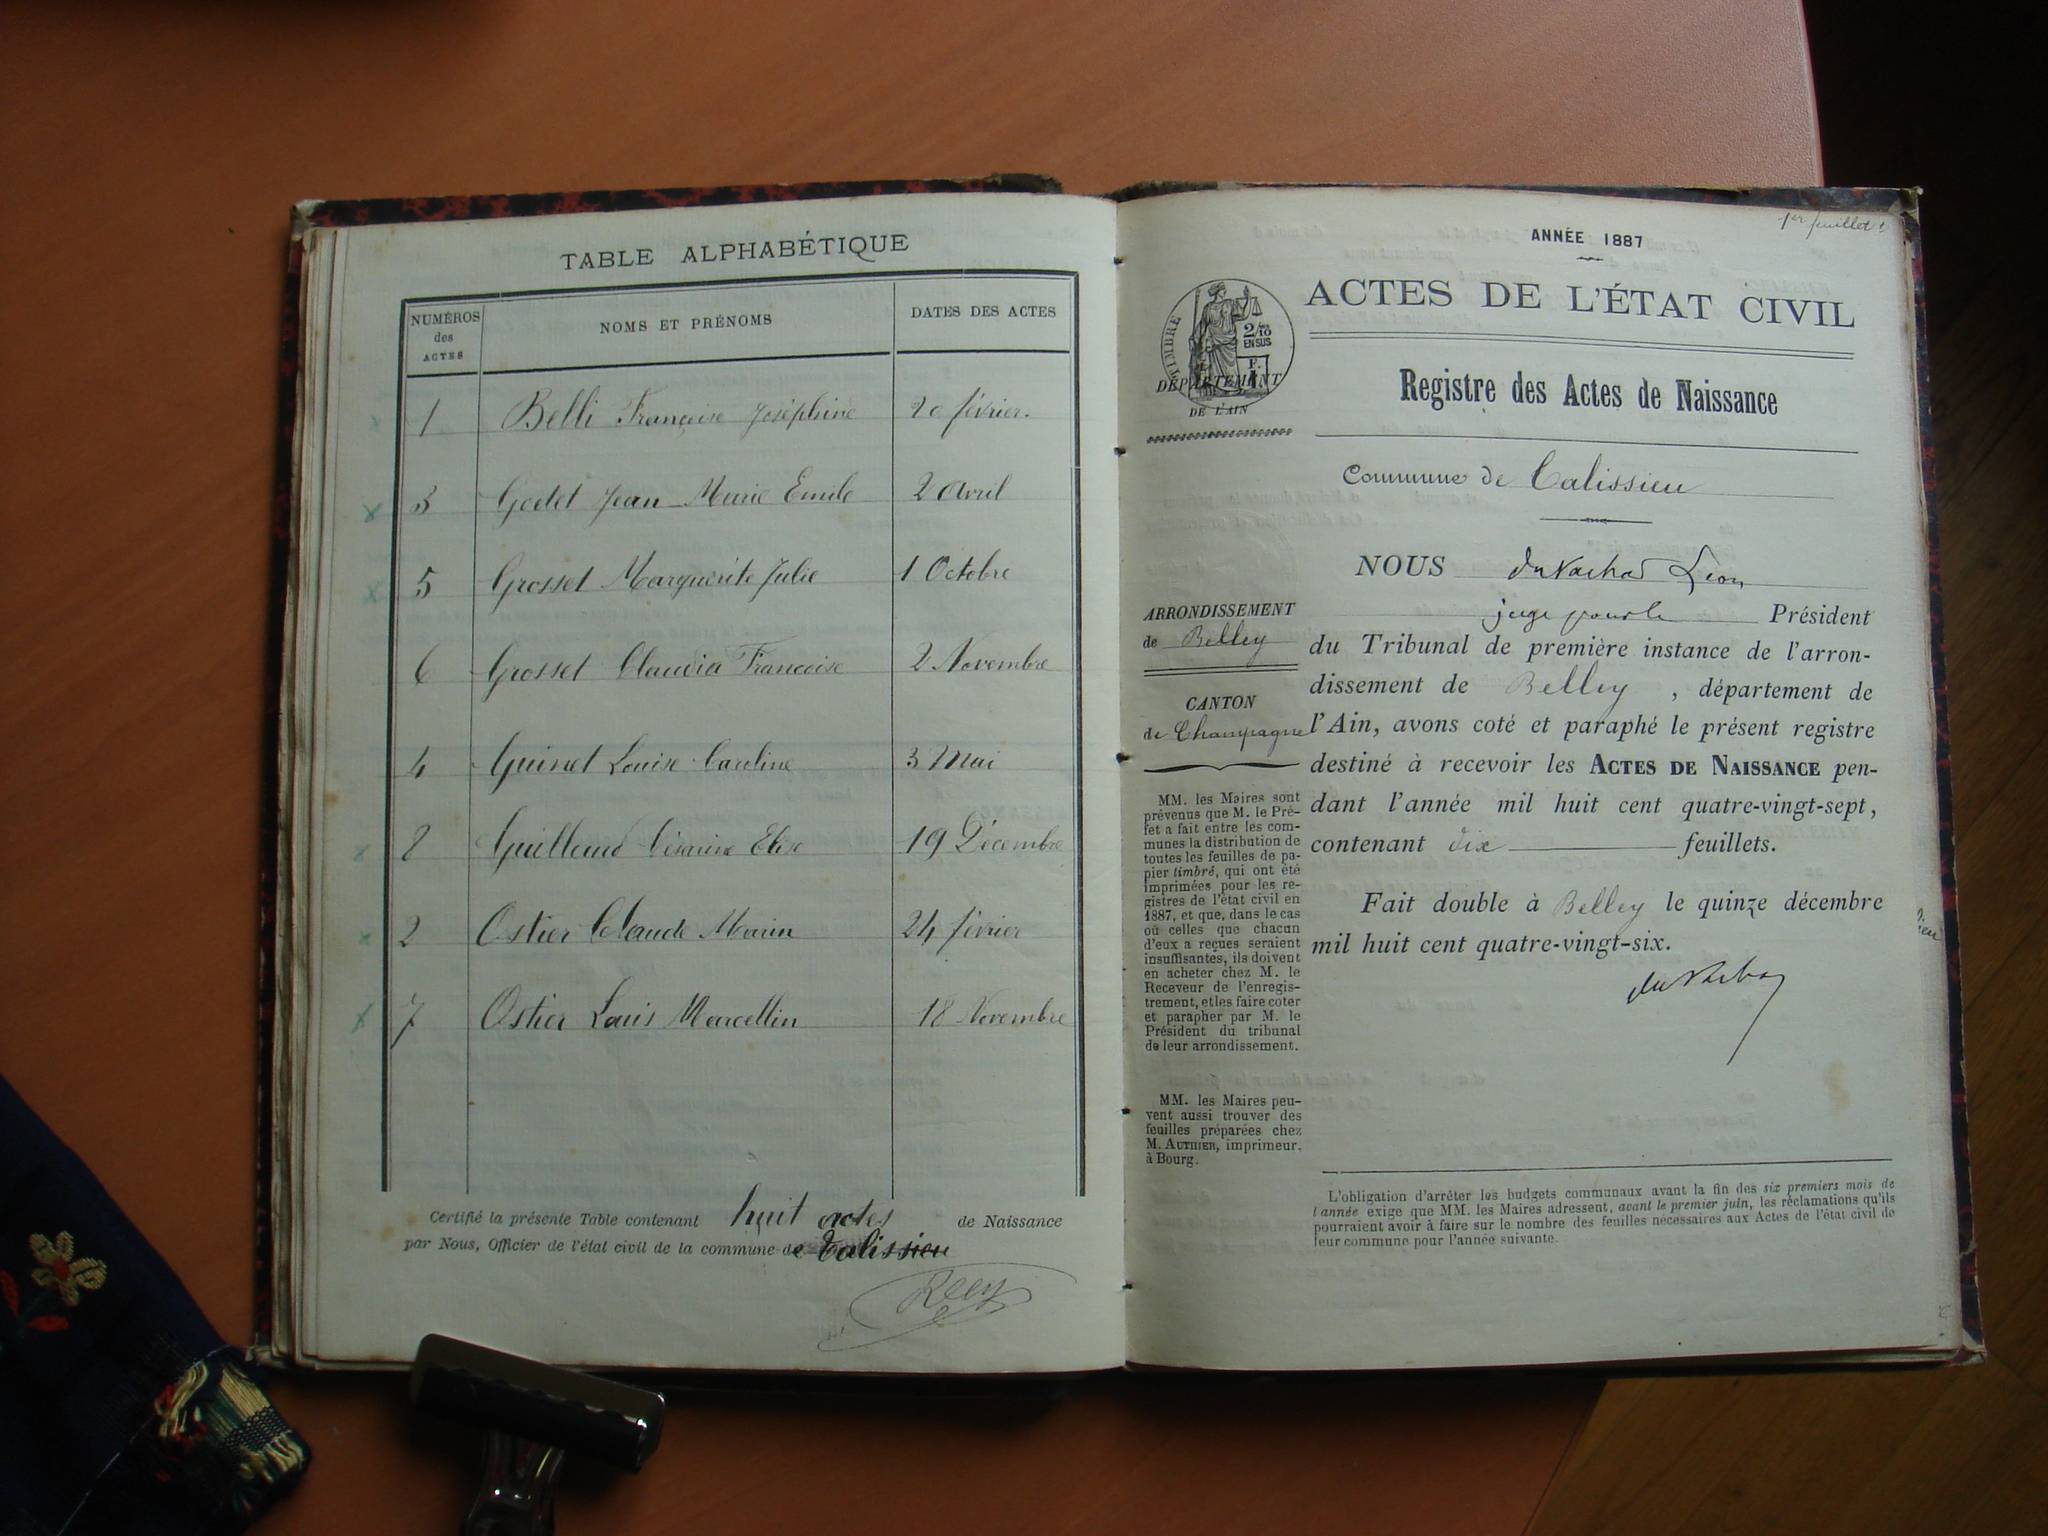 TABLE ALPHABÉTIQUE
NUMÉROS des ACTES
NOMS ET PRÉNOMS
DATES DES ACTES
1 Belli Françoise Joséphine 20 février.
3 Godet Jean Marie Emile 2 Avril
5 Grosset Marguerite Julie 1 Octobre
6 Grosset Claudia Francoise 2 Novembre
4 Guinet Louise Caroline 3 Mai
8 Guilland Césarine Elise 19 Décembre
2 Ostier Claude Marin 24 février
7 Ostier Louis Marcellin 18 Novembre
Certifié la présente Table contenant huit actes de Naissance
par Nous, Officier de l'état civil de la commune de Talissieu
1er feuillet
ANNÉE 1887
ACTES DE L'ÉTAT CIVIL
TIMBRE
2/10
EN SUS
DÉPARTEMENT
DE L'AIN
Registre des Actes de Naissance
Commune de Talissieu
NOUS Léon
juge pour le Président
du Tribunal de première instance de l'arron-
dissement de Belley, département de
l'Ain, avons coté et paraphé le présent registre
destiné à recevoir les ACTES DE NAISSANCE pen-
dant l'année mil huit cent quatre-vingt-sept,
contenant dix feuillets.
Fait double à Belley le quinze décembre
mil huit cent quatre-vingt-six.
ARRONDISSEMENT
de Belley
CANTON
de Champagne
MM. les Maires sont
prévenus que M. le Pré-
fet a fait entre les com-
munes la distribution de
toutes les feuilles de pa-
pier timbré, qui ont été
imprimées pour les re-
gistres de l'état civil en
1887, et que, dans le cas
où celles que chacun
d'eux a reçues seraient
insuffisantes, ils doivent
en acheter chez M. le
Receveur de l'enregis-
trement, et les faire coter
et parapher par M. le
Président du tribunal
de leur arrondissement.
MM. les Maires peu-
vent aussi trouver des
feuilles préparées chez
M. AUTHIER, imprimeur,
à Bourg.
L'obligation d'arrêter les budgets communaux avant la fin des six premiers mois de
l'année exige que MM. les Maires adressent, avant le premier juin, les réclamations qu'ils
pourraient avoir à faire sur le nombre des feuilles nécessaires aux Actes de l'état civil de
leur commune pour l'année suivante.